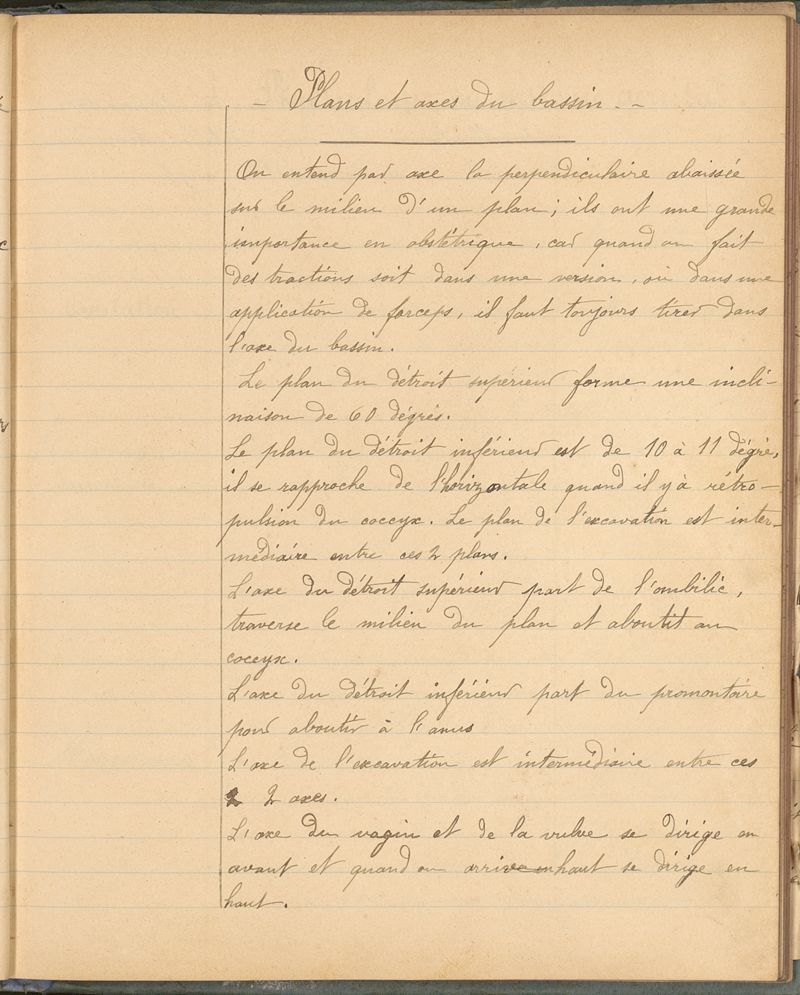 - Plans et axes du bassin. -
On entend par axe la perpendiculaire abaissée
sur le milieu d'un plan ; ils ont une grande
importance en obstétrique, car quand on fait
des tractions soit dans une version, ou dans une
application de forceps, il faut toujours tirer dans
l'axe du bassin.
Le plan du détroit supérieur forme une incli-
naison de 60 dégrés.
Le plan du détroit inférieur est de 10 à 11 dégrés,
il se rapproche de l'horizontale quand il y a rétro-
pulsion du coccyx. Le plan de l'excavation est inter-
médiaire entre ces 2 plans.
L'axe du détroit supérieur part de l'ombilic,
traverse le milieu du plan et aboutit au
coccyx.
L'axe du détroit inférieur part du promontoire
pour aboutir à l'anus
L'axe de l'excavation est intermédiaire entre ces
2 2 axes.
L'axe du vagin et de la vulve se dirige en
avant et quand on arrive en haut se dirige en
haut.